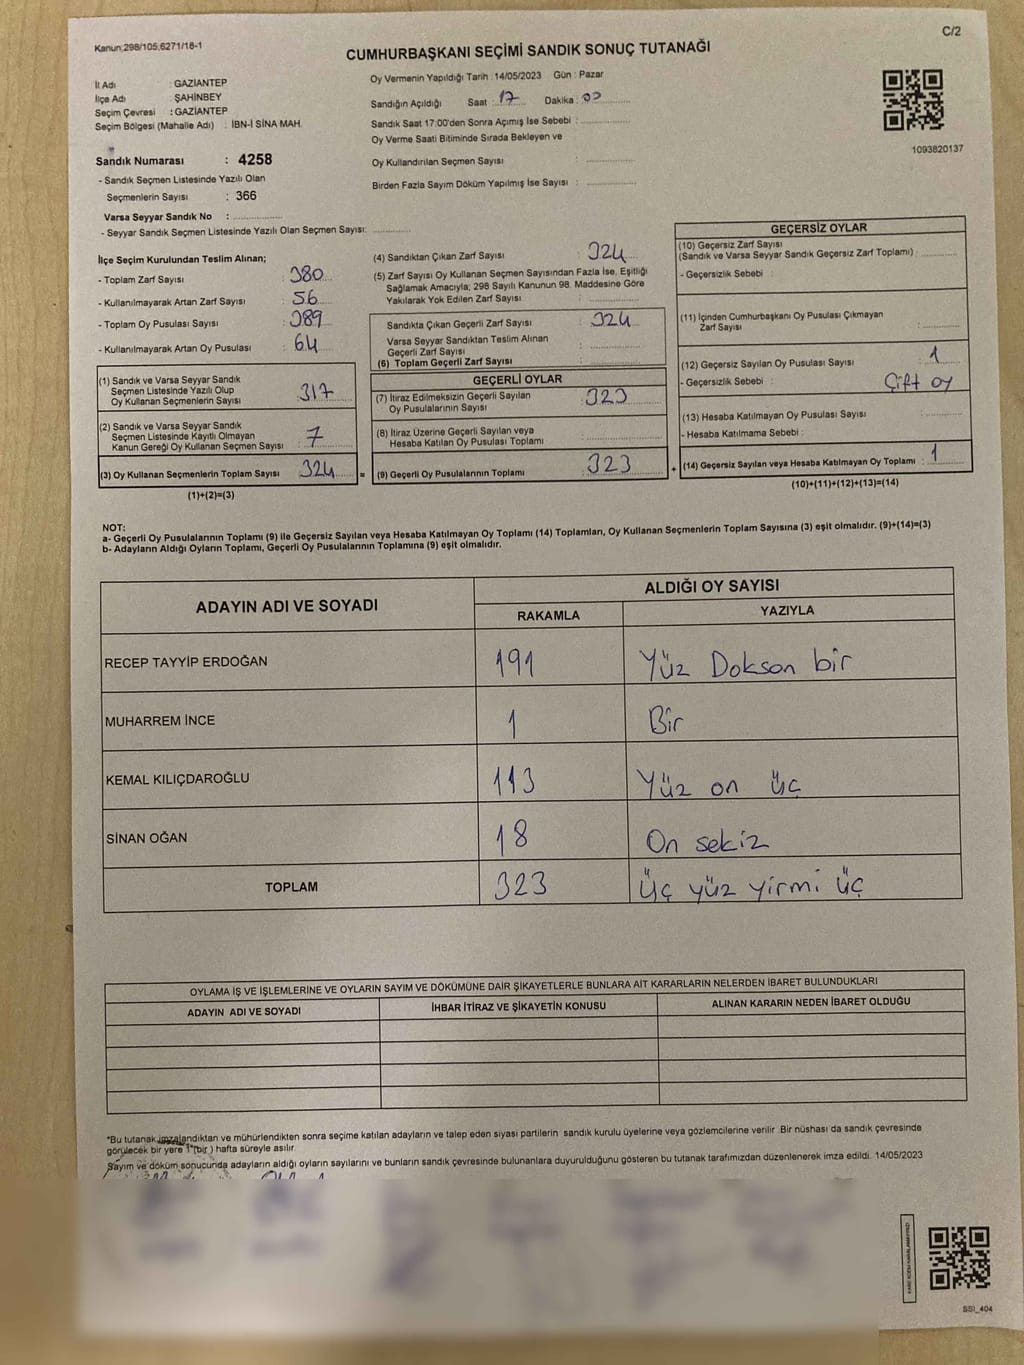 Kanun;298/105,6271/18-1
C/2
CUMHURBAŞKANI SEÇİMİ SANDIK SONUÇ TUTANAĞI
İl Adı : GAZİANTEP
İlçe Adı : ŞAHİNBEY
Seçim Çevresi : GAZİANTEP
Seçim Bölgesi (Mahalle Adı) : İBN-İ SİNA MAH.
Oy Vermenin Yapıldığı Tarih : 14/05/2023 Gün : Pazar
Sandığın Açıldığı Saat : 17 Dakika : 00
Sandık Saat 17:00'den Sonra Açımış İse Sebebi :
Oy Verme Saati Bitiminde Sırada Bekleyen ve
Oy Kullandırılan Seçmen Sayısı :
Birden Fazla Sayım Döküm Yapılmış İse Sayısı :
1093820137
Sandık Numarası : 4258
- Sandık Seçmen Listesinde Yazılı Olan
Seçmenlerin Sayısı : 366
Varsa Seyyar Sandık No :
- Seyyar Sandık Seçmen Listesinde Yazılı Olan Seçmen Sayısı:
İlçe Seçim Kurulundan Teslim Alınan;
- Toplam Zarf Sayısı : 380
- Kullanılmayarak Artan Zarf Sayısı : 56
- Toplam Oy Pusulası Sayısı : 389
- Kullanılmayarak Artan Oy Pusulası : 64
(1) Sandık ve Varsa Seyyar Sandık
Seçmen Listesinde Yazılı Olup
Oy Kullanan Seçmenlerin Sayısı : 317
(2) Sandık ve Varsa Seyyar Sandık
Seçmen Listesinde Kayıtlı Olmayan
Kanun Gereği Oy Kullanan Seçmen Sayısı : 7
(3) Oy Kullanan Seçmenlerin Toplam Sayısı : 324
(1)+(2)=(3)
(4) Sandıktan Çıkan Zarf Sayısı : 324
(5) Zarf Sayısı Oy Kullanan Seçmen Sayısından Fazla İse, Eşitliği
Sağlamak Amacıyla; 298 Sayılı Kanunun 98. Maddesine Göre
Yakılarak Yok Edilen Zarf Sayısı :
Sandıkta Çıkan Geçerli Zarf Sayısı : 324
Varsa Seyyar Sandıktan Teslim Alınan
Geçerli Zarf Sayısı :
(6) Toplam Geçerli Zarf Sayısı :
GEÇERLİ OYLAR
(7) İtiraz Edilmeksizin Geçerli Sayılan
Oy Pusulalarının Sayısı : 323
(8) İtiraz Üzerine Geçerli Sayılan veya
Hesaba Katılan Oy Pusulası Toplamı :
= (9) Geçerli Oy Pusulalarının Toplamı : 323
GEÇERSİZ OYLAR
(10) Geçersiz Zarf Sayısı
(Sandık ve Varsa Seyyar Sandık Geçersiz Zarf Toplamı) :
- Geçersizlik Sebebi :
(11) İçinden Cumhurbaşkanı Oy Pusulası Çıkmayan
Zarf Sayısı :
(12) Geçersiz Sayılan Oy Pusulası Sayısı : 1
- Geçersizlik Sebebi : Çift oy
(13) Hesaba Katılmayan Oy Pusulası Sayısı :
- Hesaba Katılmama Sebebi :
+ (14) Geçersiz Sayılan veya Hesaba Katılmayan Oy Toplamı : 1
(10)+(11)+(12)+(13)=(14)
NOT:
a- Geçerli Oy Pusulalarının Toplamı (9) ile Geçersiz Sayılan veya Hesaba Katılmayan Oy Toplamı (14) Toplamları, Oy Kullanan Seçmenlerin Toplam Sayısına (3) eşit olmalıdır. (9)+(14)=(3)
b- Adayların Aldığı Oyların Toplamı, Geçerli Oy Pusulalarının Toplamına (9) eşit olmalıdır.
ADAYIN ADI VE SOYADI
ALDIĞI OY SAYISI
RAKAMLA YAZIYLA
RECEP TAYYİP ERDOĞAN 191 Yüz Dokson bir
MUHARREM İNCE 1 Bir
KEMAL KILIÇDAROĞLU 113 Yüz on üç
SİNAN OĞAN 18 On sekiz
TOPLAM 323 Üç yüz yirmi üç
OYLAMA İŞ VE İŞLEMLERİNE VE OYLARIN SAYIM VE DÖKÜMÜNE DAİR ŞİKAYETLERLE BUNLARA AİT KARARLARIN NELERDEN İBARET BULUNDUKLARI
ADAYIN ADI VE SOYADI İHBAR İTİRAZ VE ŞİKAYETİN KONUSU ALINAN KARARIN NEDEN İBARET OLDUĞU
*Bu tutanak imzalandıktan ve mühürlendikten sonra seçime katılan adayların ve talep eden siyasi partilerin sandık kurulu üyelerine veya gözlemcilerine verilir .Bir nüshası da sandık çevresinde
görülecek bir yere 1 (bir ) hafta süreyle asılır.
Sayım ve döküm sonucunda adayların aldığı oyların sayılarını ve bunların sandık çevresinde bulunanlara duyurulduğunu gösteren bu tutanak tarafımızdan düzenlenerek imza edildi. 14/05/2023
SSI_404